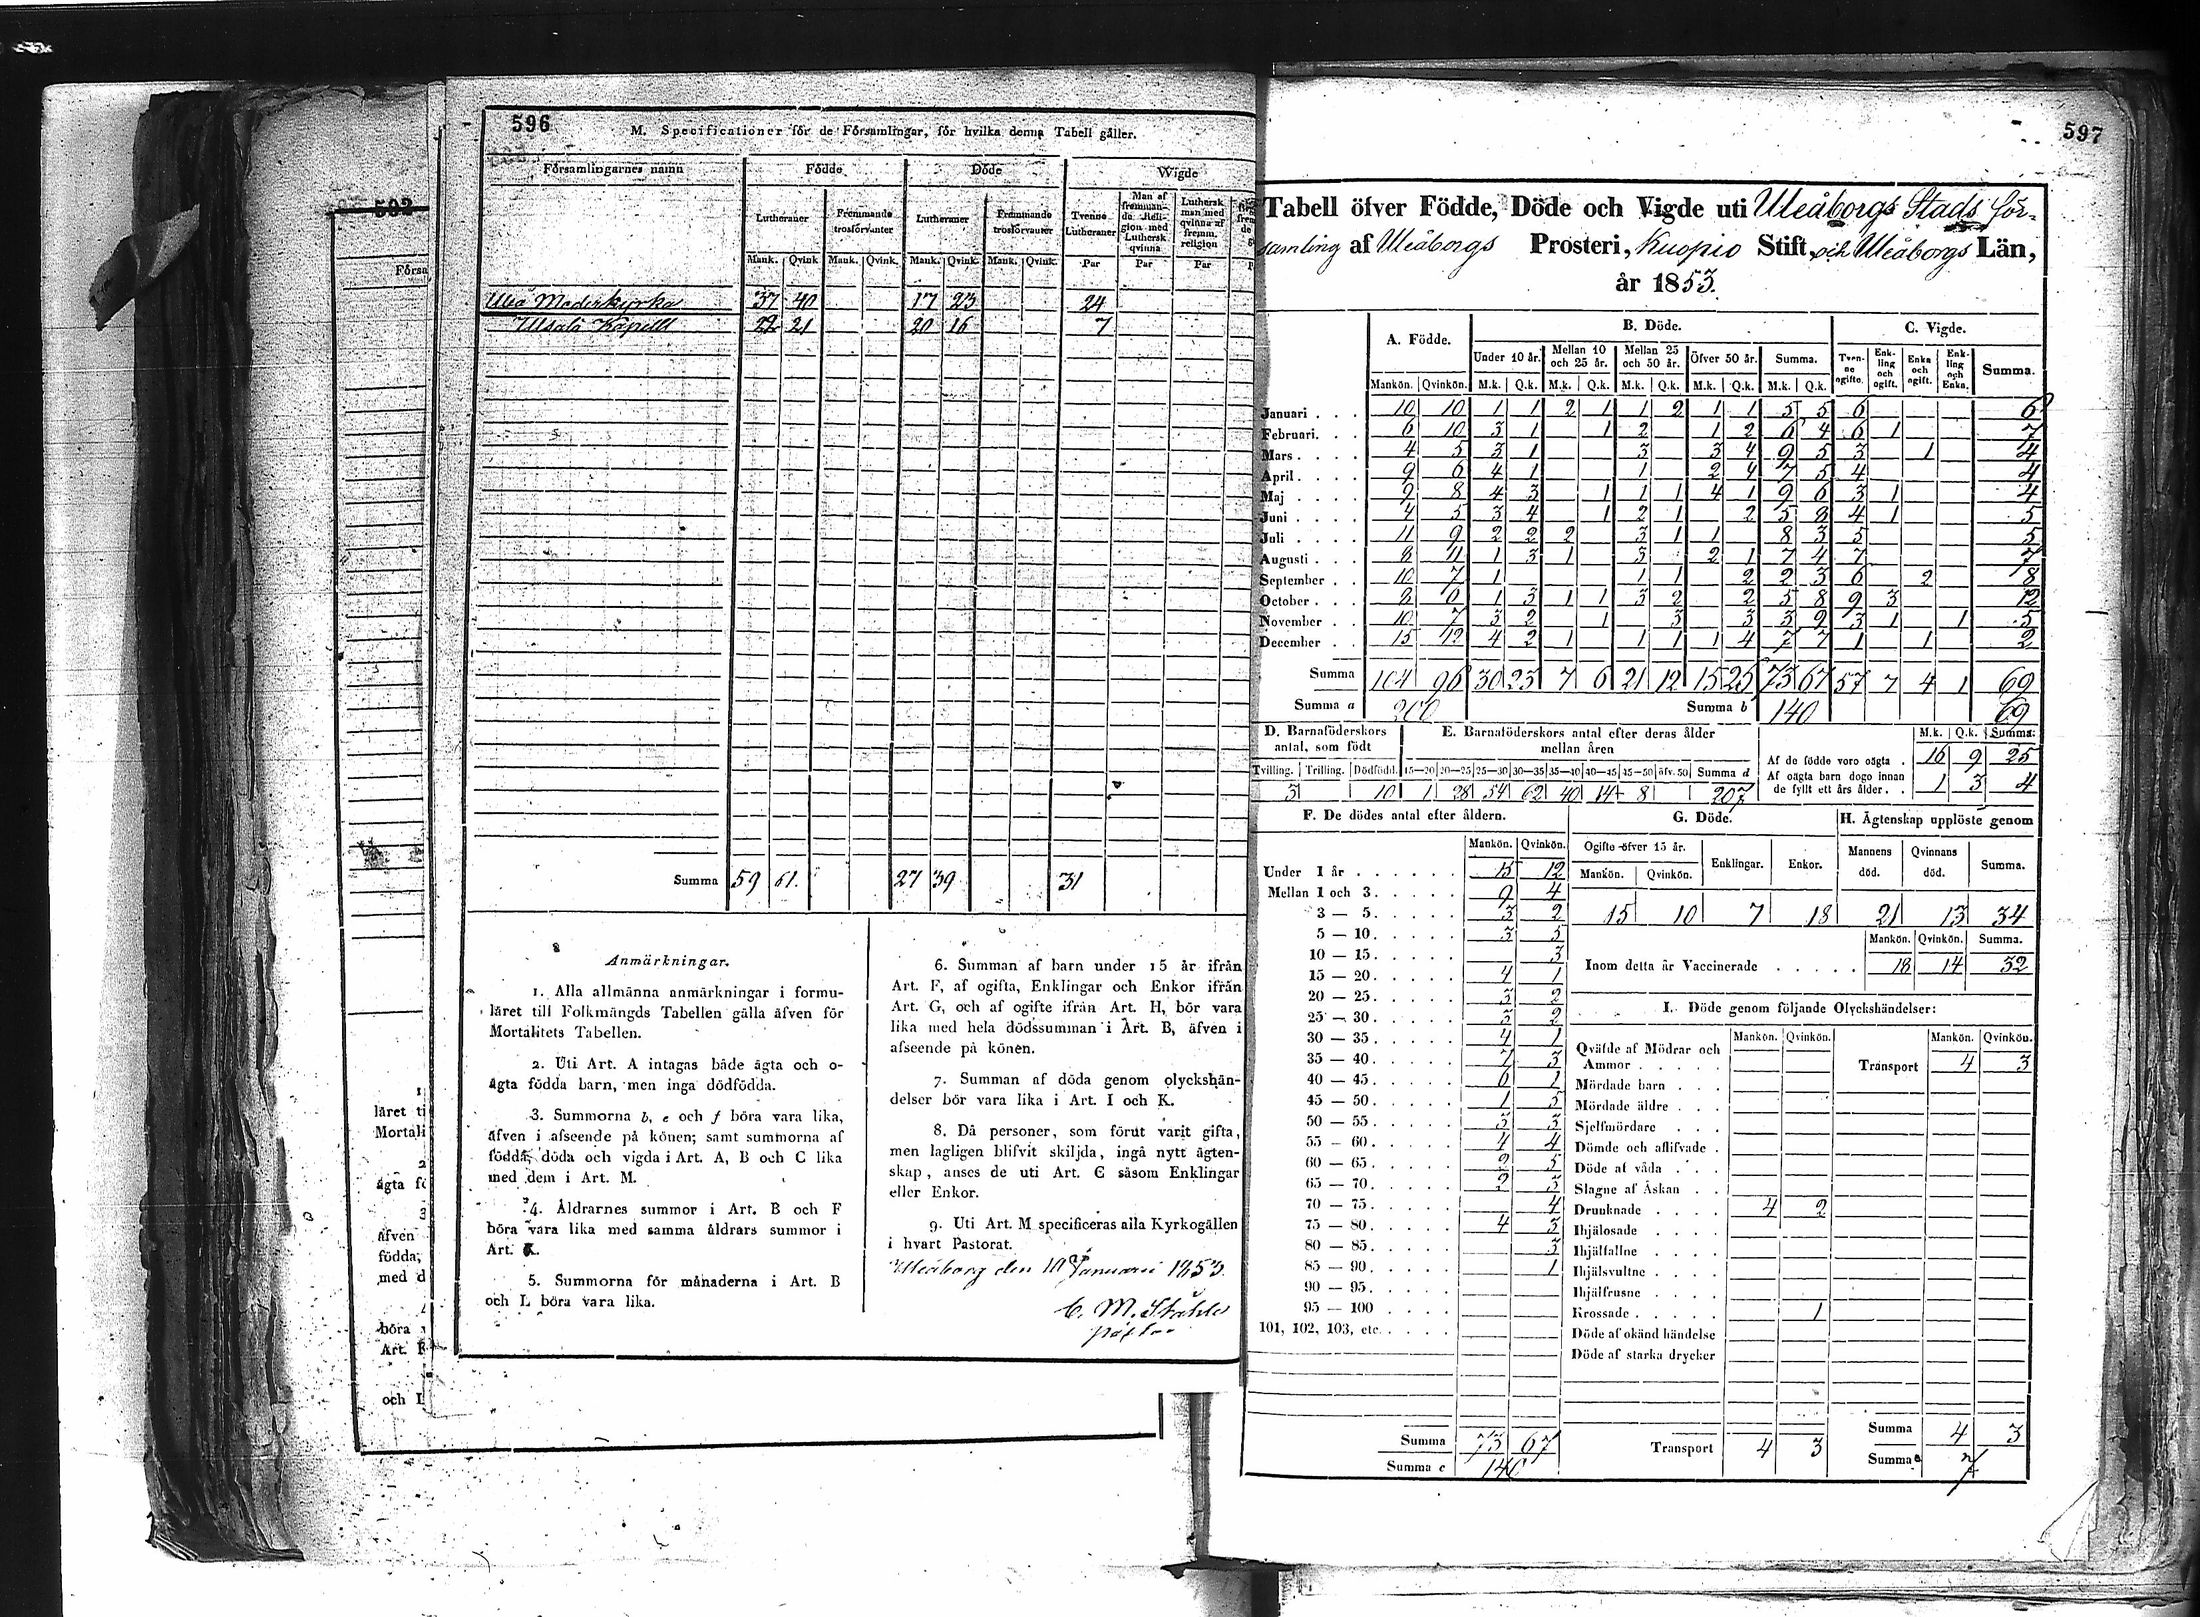 596
M. Specificationer för de Församlingar, för hvilka denna Tabell gäller.
Församlingarnes namn Födde Döde Wigde
Lutheraner Främmande trosförvanter Lutheraner Främmande trosförvanter Tvenne Lutheraner Man af främmande Religion med Luthersk qvinna Luthersk man med qvinna af fremm. religion
Mank. Qvink Mank. Qvink. Mank. Qvink. Mank. Qvink. Par Par Par
Uleå Moderkyrka 37 40 17 23 24
Ulsalo Kapell 22 21 20 16 7
Summa 59 61. 27 39 31
Anmärkningar.
1. Alla allmänna anmärkningar i formu-
läret till Folkmängds Tabellen gälla äfven för
Mortalitets Tabellen.
2. Uti Art. A intagas både ägta och o-
ägta födda barn, men inga dödfödda.
3. Summorna b, e och f böra vara lika,
äfven i afseende på könen; samt summorna af
födda, döda och vigda i Art. A, B och C lika
med dem i Art. M.
4. Åldrarnes summor i Art. B och F
böra vara lika med samma åldrars summor i
Art. K.
5. Summorna för månaderna i Art. B
och L böra vara lika.
6. Summan af barn under 15 år ifrån
Art. F, af ogifta, Enklingar och Enkor ifrån
Art. G, och af ogifte ifrån Art. H, bör vara
lika med hela dödssumman i Art. B, äfven i
afseende på könen.
7. Summan af döda genom olyckshän-
delser bör vara lika i Art. I och K.
8. Då personer, som förut varit gifta,
men lagligen blifvit skiljda, ingå nytt ägten-
skap, anses de uti Art. C såsom Enklingar
eller Enkor.
9. Uti Art. M specificeras alla Kyrkogällen
i hvart Pastorat.
Uleåborg den 10 Januarii 1853.
C. M. Ståhle
592
597
Tabell öfver Födde, Döde och Vigde uti Uleåborgs Stads för-
samling af Uleåborgs Prosteri, Kuopio Stift, och Uleåborgs Län,
år 1853.
A. Födde. B. Döde. C. Vigde.
Under 10 år. Mellan 10 och 25 år. Mellan 25 och 50 år. Öfver 50 år. Summa. Tvenne ogifte. Enkling och ogift. Enka och ogift. Enkling och Enka. Summa.
Mankön. Qvinkön. M.k. Q.k. M.k. Q.k. M.k. Q.k. M.k. Q.k. M.k. Q.k.
Januari 10 10 1 1 2 1 1 2 1 1 5 5 6 6
Februari. 6 10 3 1 1 2 1 2 6 4 6 1 7
Mars 4 5 3 1 3 3 4 9 5 3 1 4
April. 9 6 4 1 1 2 4 7 5 4 4
Maj 9 8 4 3 1 1 1 4 1 9 6 3 1 4
Juni 4 5 3 4 1 2 1 2 5 8 4 1 5
Juli 11 9 2 2 2 3 1 1 8 3 5 5
Augusti 8 11 1 3 1 3 2 1 7 4 7 7
September 10 7 1 1 1 2 2 3 6 2 8
October 8 1 3 1 1 3 2 2 5 8 9 3 12
November 10 7 3 2 1 3 3 3 9 3 1 1 5
December 15 12 4 2 1 1 1 1 4 7 7 1 1 2
Summa 104 96 30 23 7 6 21 12 15 25 73 67 57 7 4 1 69
Summa a 200 Summa b 140 69
D. Barnaföderskors antal, som födt
Tvilling. Trilling. Dödfödd.
3 10
E. Barnaföderskors antal efter deras ålder mellan åren
15—20 20—25 25—30 30—35 35—40 40—45 45—50 öfv. 50 Summa d
1 28 54 62 40 14 8 207
M.k. Q.k. Summa.
Af de födde voro oägta 16 9 25
Af oägta barn dogo innan
de fyllt ett års ålder 1 3 4
F. De dödes antal efter åldern.
Mankön. Qvinkön.
Under 1 år 15 12
Mellan 1 och 3 9 4
3 — 5 3 2
5 — 10 3 5
10 — 15 3
15 — 20 4 1
20 — 25 3 2
25 — 30 3 2
30 — 35 4 1
35 — 40 7 3
40 — 45 6 1
45 — 50 1 5
50 — 55 5 3
55 — 60 4 4
60 — 65 2 5
65 — 70 2 3
70 — 75 4
75 — 80 4 3
80 — 85 3
85 — 90 1
90 — 95
95 — 100
101, 102, 103, etc.
Summa 73 67
Summa c 140
G. Döde.
Ogifte öfver 15 år. Enklingar. Enkor.
Mankön. Qvinkön.
15 10 7 18
H. Ägtenskap upplöste genom
Mannens död. Qvinnans död. Summa.
21 13 34
Mankön. Qvinkön. Summa.
Inom detta år Vaccinerade 18 14 32
I. Döde genom följande Olyckshändelser:
Mankön. Qvinkön. Mankön. Qvinkön.
Qväfde af Mödrar och
Ammor Transport 4 3
Mördade barn
Mördade äldre
Sjelfmördare
Dömde och aflifvade
Döde af våda
Slagne af Åskan
Drunknade 4 2
Ihjälosade
Ihjälfallne
Ihjälsvultne
Ihjälfrusne
Krossade 1
Döde af okänd händelse
Döde af starka drycker
Transport 4 3
Summa 4 3
Summa e 7